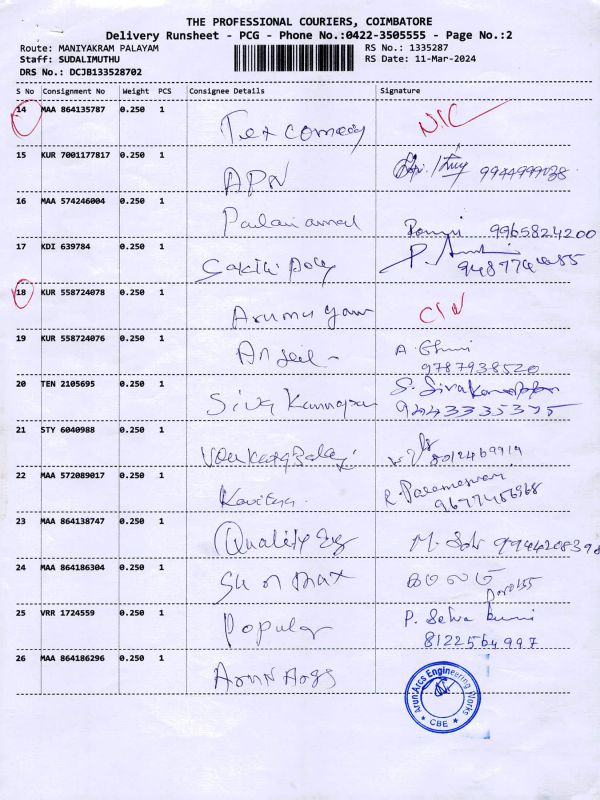 THE PROFESSIONAL COURIERS, COIMBATORE
Delivery Runsheet - PCG - Phone No.:0422-3505555 - Page No.:2
Route: MANIYAKRAM PALAYAM
Staff: SUDALIMUTHU
DRS No.: DCJB133528702
RS No.: 1335287
RS Date: 11-Mar-2024
S No Consignment No Weight PCS Consignee Details Signature
14 MAA 864135787 0.250 1 Tex comedy
15 KUR 7001177817 0.250 1 APN
16 MAA 574246004 0.250 1 9965824200
17 KDI 639784 0.250 1 Sakthi Poly
18 KUR 558724078 0.250 1 Arumugam
19 KUR 558724076 0.250 1 9787938520
20 TEN 2105695 0.250 1 Siva Kannapan S. Siva
9443335375
21 STY 6040988 0.250 1 8012469919
22 MAA 572089017 0.250 1 Kavitya. R. Parameswari
23 MAA 864138747 0.250 1 Quality Eng
24 MAA 864186304 0.250 1
25 VRR 1724559 0.250 1 Popular P. Selva
8122564997
26 MAA 864186296 0.250 1 Arun
Arun Arcs Engineering Works
CBE